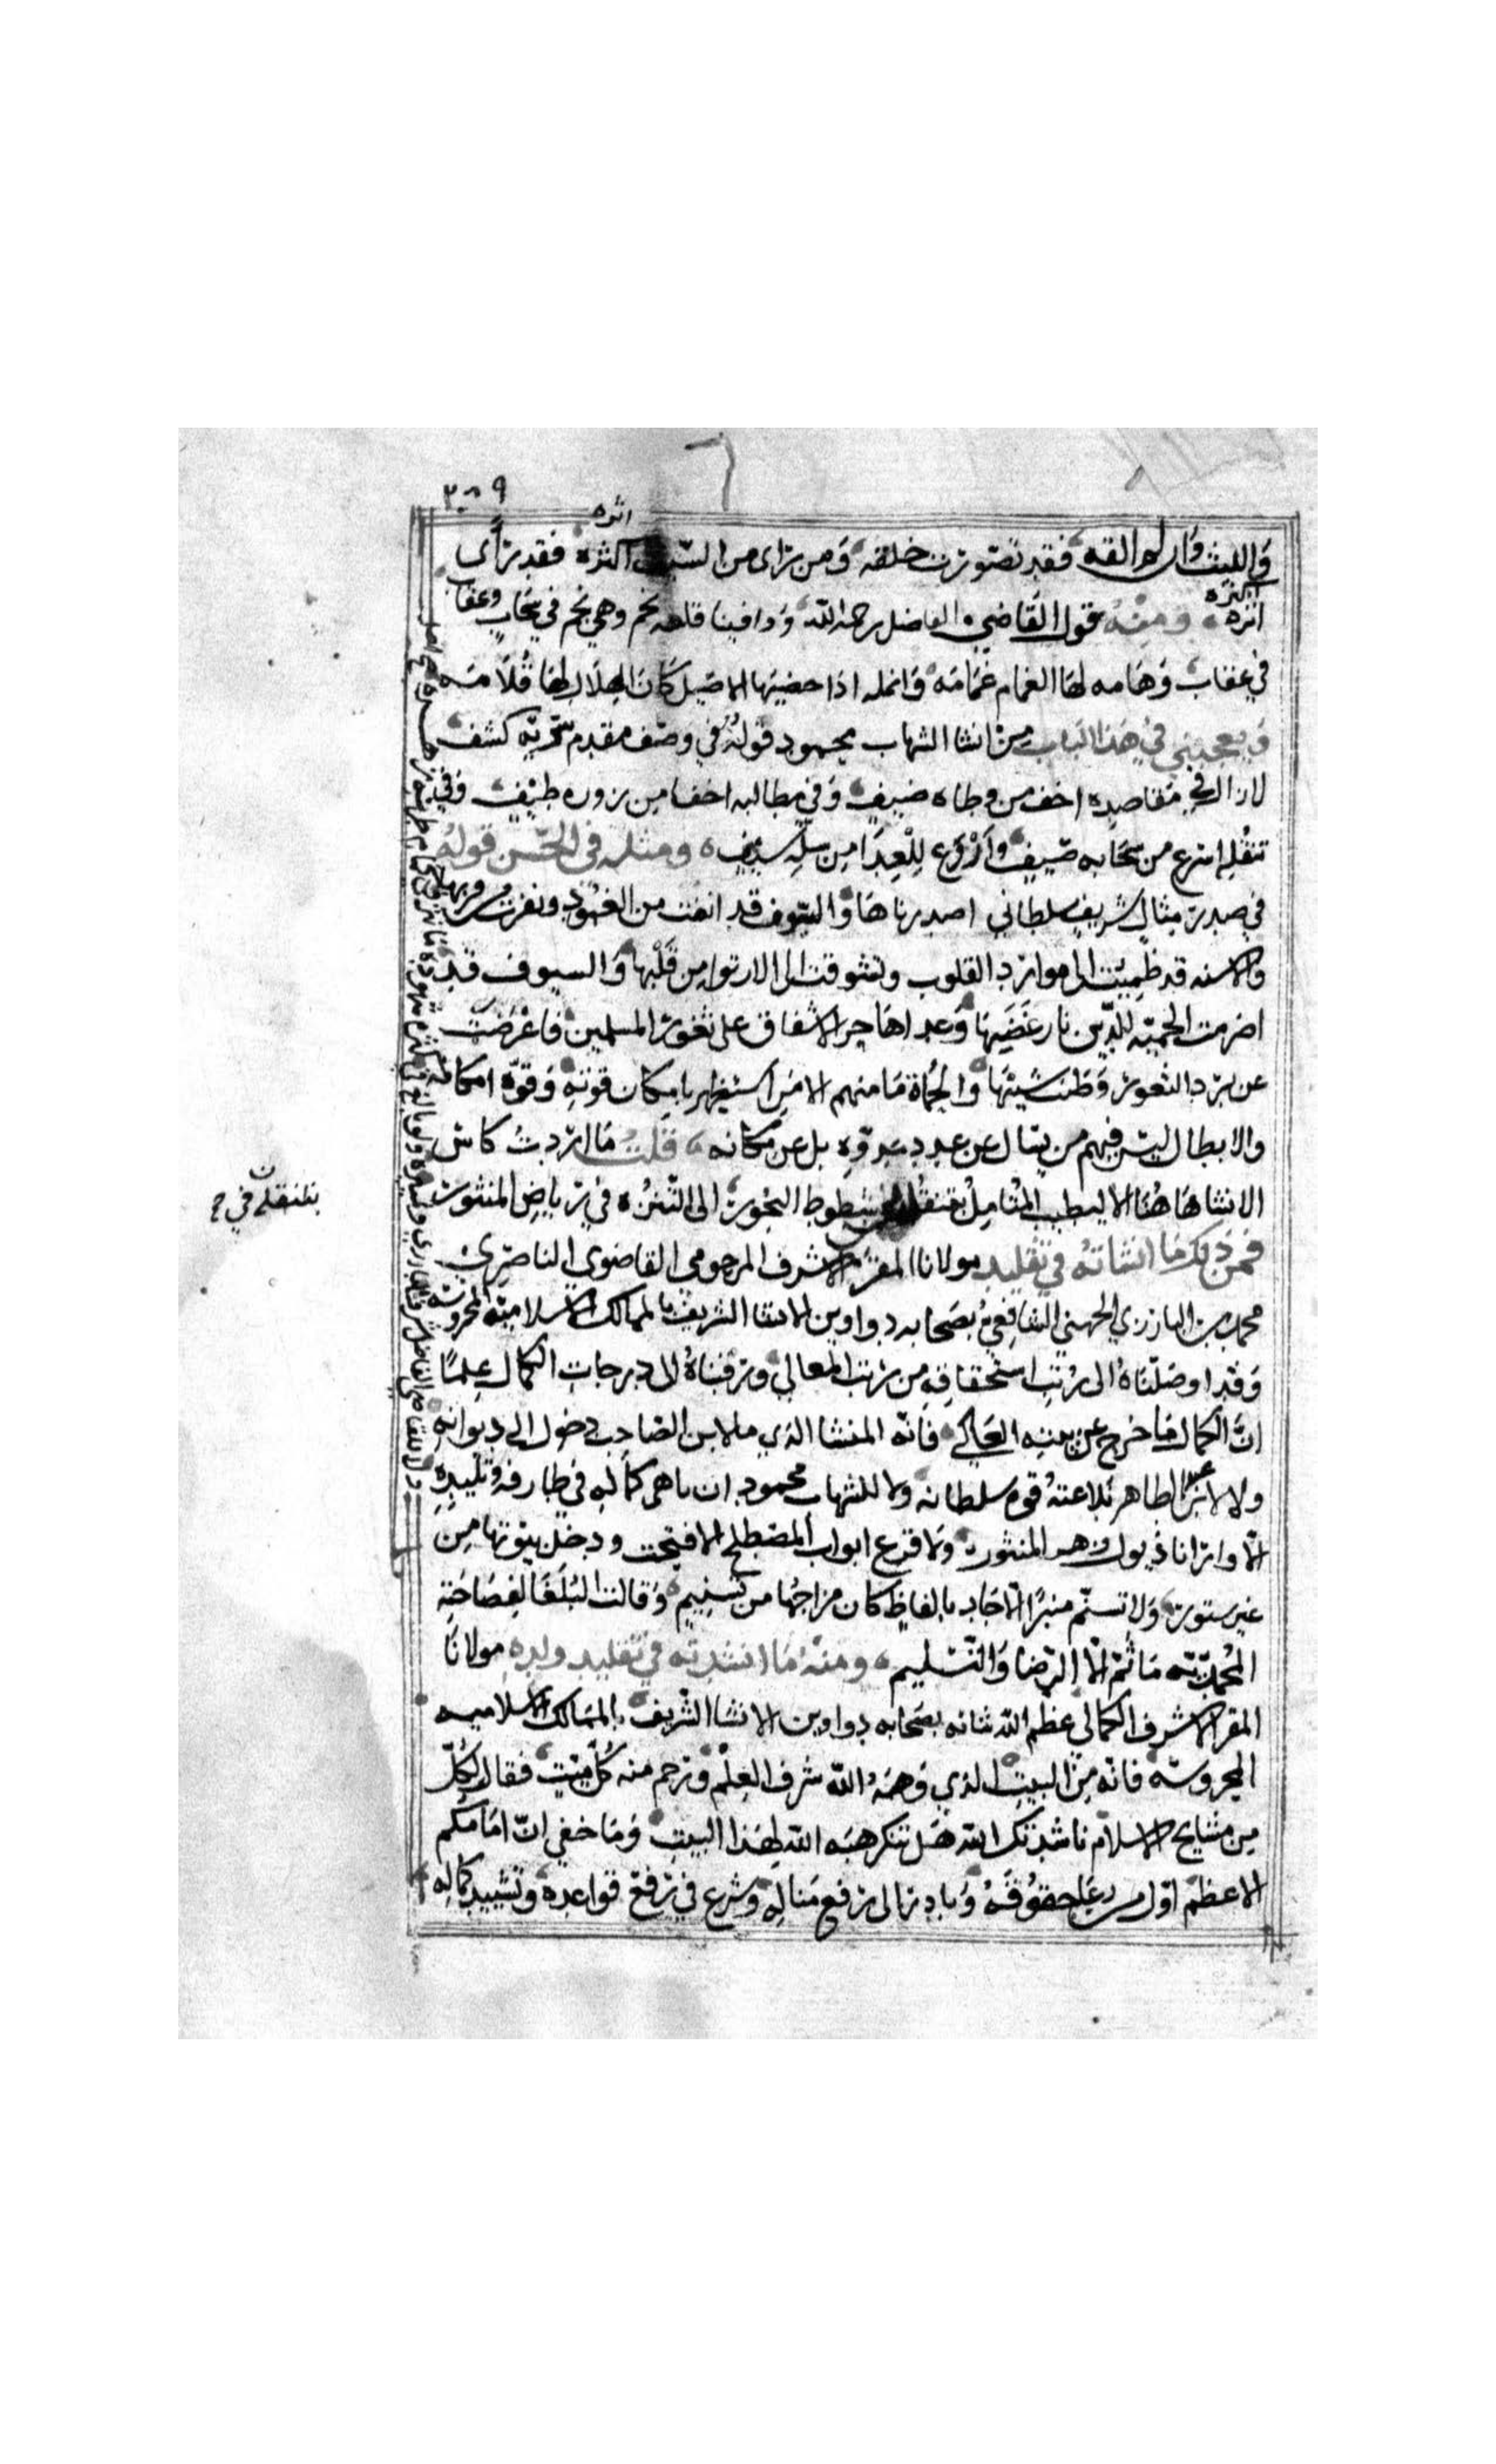 ٣٠٩
اثره
والليث وان لم القه فقد تصورت خلقه ومن راى من السيف اثره فقد راى
اكثره
اثره ومنه قول القاضي الفاضل رحمه الله ووافينا قلعه نجم وهي نجم في سحاب وعقاب
في عقاب وهامه لها الغمام عمامه وانمله اذا خضبها الاصيل كان الهلال لها قلامه
ويعجبني في هذا الباب من انشا الشهاب محمود قوله في وصف مقدم سريه كشف
لا زال في مقاصده اخف من وطاه ضيف وفي مطالبه اخفا من زوره طيف وفي
تنقله اسرع من سحابه صيف واروع للعدا من سله سيف ومثله في الحسن قوله
في صدر مثال شريف سلطاني اصدرناها والسيوف قد انفت من الغمود ونفرت من قربها
والاسنه قد ظميت الى موارد القلوب وتشوقت الى الارتوا من قلبها والسيوف قد
اضرمت الحميه للدين نار غضبها وعداها حر الاشفاق على ثغور المسلمين فاعرضت
عن برد الثغور وطيب شنبها والحماة ما منهم الا من استظهر بامكان قوته وقوة امكانه
والابطال ليس فيهم من يسال عن عدد عدوه بل عن مكانه قلت ما اردت كاس
الانشا هاهنا الا ليطيب المتامل بتنقله شطوط البحور الى التنزه في رياض المنثور
فمن ذلك ما انشاته في تقليد مولانا المقر الاشرف المرحومي القاضوي الناصري
محمد بن البارزي الجهني الشافعي بصحابه دواوين الانشا الشريف بالممالك الاسلاميه المحروسه
وقد اوصلناه الى رتب استحقاقه من رتب المعالي ورقيناه الى درجات الكمال علما
ان الكمال ما خرج عن بيته العالي فانه المنشا الذي ما لابن الصاحب دخول الى ديوانه
ولا لابن عبد الطاهر بلاغته قوه سلطانه ولا للشهاب محمود ان باهى كماله في طارفه وتليده
الا وارانا ذبول زهر المنثور ولا قرع ابواب المصطلح الا فتحت ودخل بيوتها من
غير ستور ولا تسنم منبرا الا جاد بالفاظ كان مزاجها من تسنيم وقالت البلغا لفصاحته
المحمديه ما ثم الا الرضا والتسليم ومنه ما انشدته في تقليد ولده مولانا
المقر الاشرف الكمالي عظم الله شانه بصحابه دواوين الانشا الشريف بالممالك الاسلاميه
المحروسه فانه من البيت الذي وهبه الله شرف العلم ورحم منه كل ميت فقال لكل
من مشايخ الاسلام ناشدتك الله هل تنكر هبه الله لهذا البيت وما خفي ان امامكم
الاعظم اول من رعى حقوقه وبادر الى رفع مناله وشرع في رفع قواعده وتشييد كماله